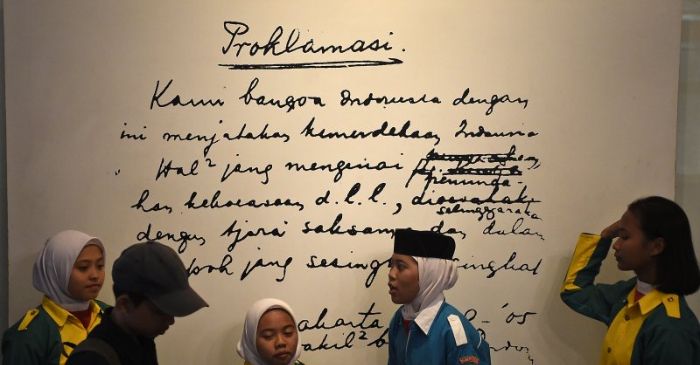 Proklamasi.
Kami bangsa Indonesia dengan
ini menjatakan kemerdekaan Indonesia
Hal² jang mengenai
peminda
han kekoeasaan d.l.l.,
selenggarakan
dengan tjara saksama dan dalam
poh jang sesingk ingkat
akarta - '05
akil² b